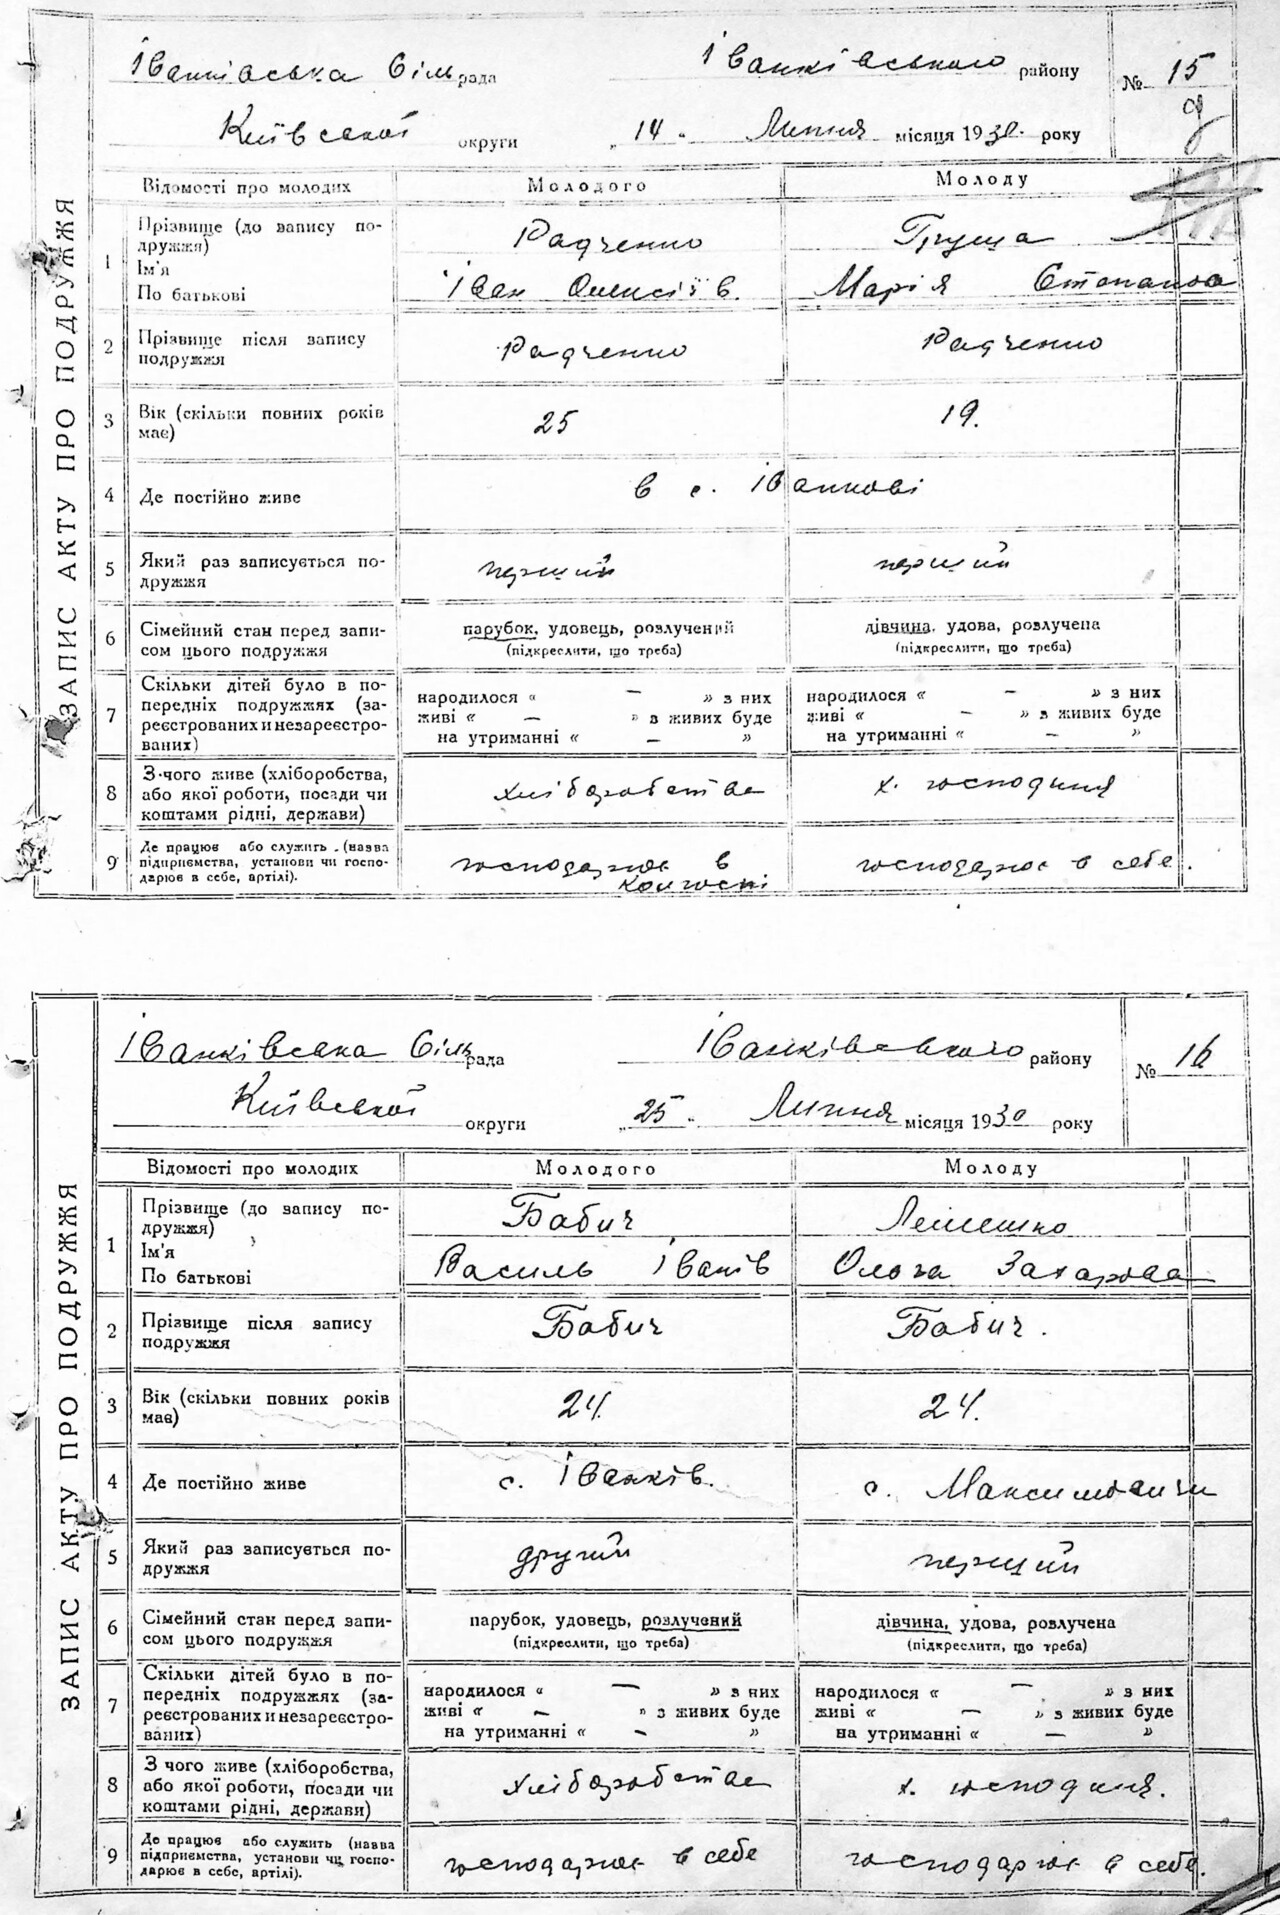 ЗАПИС АКТУ ПРО ПОДРУЖЖЯ
Іванківська Сільрада Іванківського району № 15
Київської округи „14„ Липня місяця 1930 року
Відомості про молодих Молодого Молоду
1 Прізвище (до запису по- Радченко Груща
дружжя)
Ім'я Іван Олексіїв. Марія Степанова
По батькові
2 Прізвище після запису Радченко Радченко
подружжя
3 Вік (скільки повних років 25 19.
має)
4 Де постійно живе в с. Іванкові
5 Який раз записується по- перший перший
дружжя
6 Сімейний стан перед запи- парубок, удовець, розлучений дівчина, удова, розлучена
сом цього подружжя (підкреслити, що треба) (підкреслити, що треба)
7 Скільки дітей було в по- народилося « — » з них народилося « — » з них
передніх подружжях (за- живі « — » з живих буде живі « — » з живих буде
реєстрованих и незареєстро- на утриманні « — » на утриманні « — »
ваних)
8 З чого живе (хліборобства, хліборобства х. господиня
або якої роботи, посади чи
коштами рідні, держави)
9 Де працює або служить (назва господарює в господарює в себе.
підприємства, установи чи госпо- колгоспі
дарює в себе, артілі).
ЗАПИС АКТУ ПРО ПОДРУЖЖЯ
Іванківська Сільрада Іванківського району № 16
Київської округи „25„ Липня місяця 1930 року
Відомості про молодих Молодого Молоду
1 Прізвище (до запису по- Бабич Лемешко
дружжя)
Ім'я Василь Іванів Ольга Захарова
По батькові
2 Прізвище після запису Бабич Бабич.
подружжя
3 Вік (скільки повних років 24. 24.
має)
4 Де постійно живе с. Іванків. с. Максимовичи
5 Який раз записується по- другий перший
дружжя
6 Сімейний стан перед запи- парубок, удовець, розлучений дівчина, удова, розлучена
сом цього подружжя (підкреслити, що треба) (підкреслити, що треба)
7 Скільки дітей було в по- народилося « — » з них народилося « — » з них
передніх подружжях (за- живі « — » з живих буде живі « — » з живих буде
реєстрованих и незареєстро- на утриманні « — » на утриманні « — »
ваних)
8 З чого живе (хліборобства, хліборобства х. господиня.
або якої роботи, посади чи
коштами рідні, держави)
9 Де працює або служить (назва господарює в себе господарює в себе.
підприємства, установи чи госпо-
дарює в себе, артілі).